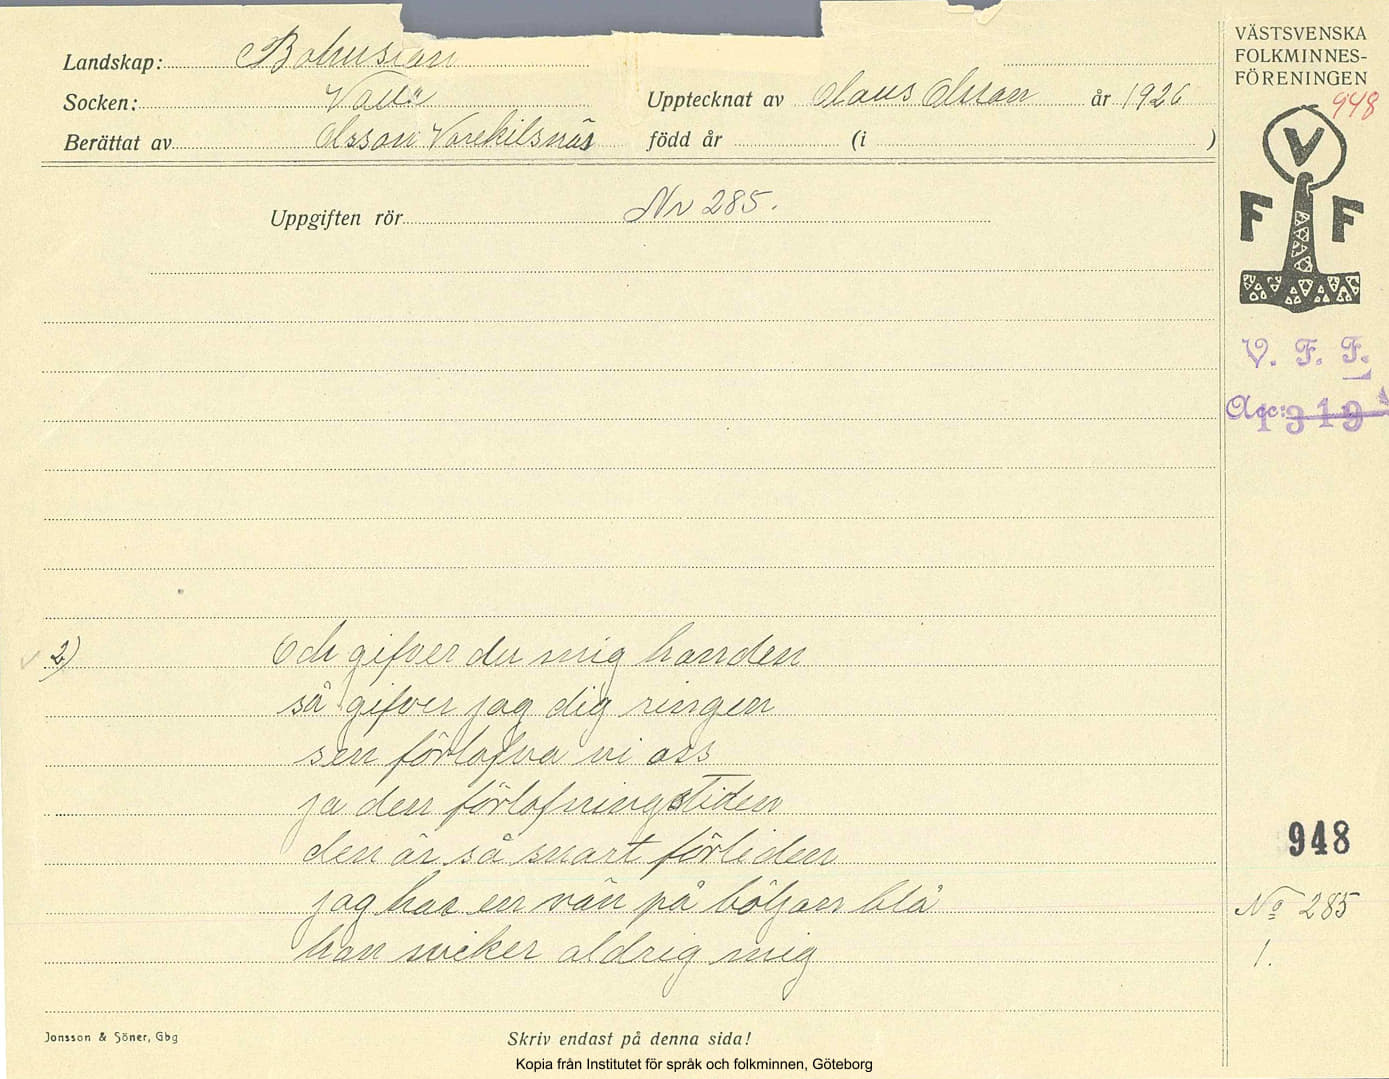 Landskap: Bohuslän
Socken: Valla
Upptecknat av Claus Olsson år 1926
Berättat av Olsson Varekilsnäs född år (i )
Uppgiften rör Nr 285.
2) Och gifver du mig handen
så gifver jag dig ringen
sen förlofva vi oss
ja den förlofningstiden
den är så snart förliden
jag har en vän på böljan blå
han sviker aldrig mig
Jonsson & Söner, Gbg
Skriv endast på denna sida!
Kopia från Institutet för språk och folkminnen, Göteborg
VÄSTSVENSKA
FOLKMINNES-
FÖRENINGEN
948
V
F F
V. F. F.
Acc: 1319
948
No 285
1.